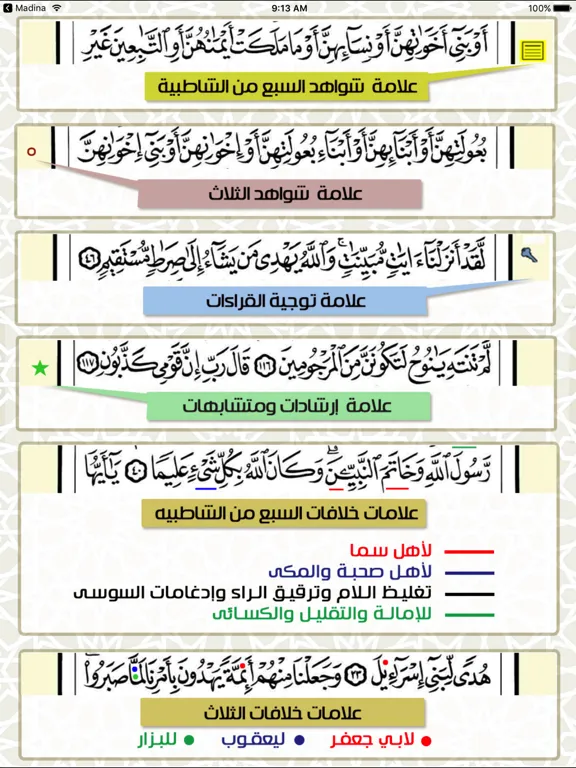 Madina
9:13 AM
100%
أَوْ بَنِي أَخَوَاتِهِنَّ أَوْ نِسَائِهِنَّ أَوْ مَا مَلَكَتْ أَيْمَانُهُنَّ أَوِ التَّابِعِينَ غَيْرِ
علامة شواهد السبع من الشاطبية
بُعُولَتِهِنَّ أَوْ أَبْنَائِهِنَّ أَوْ أَبْنَاءِ بُعُولَتِهِنَّ أَوْ إِخْوَانِهِنَّ أَوْ بَنِي إِخْوَانِهِنَّ
علامة شواهد الثلاث
لَّقَدْ أَنزَلْنَا ءَايَٰتٍ مُّبَيِّنَٰتٍ ۚ وَاللَّهُ يَهْدِي مَن يَشَاءُ إِلَىٰ صِرَٰطٍ مُّسْتَقِيمٍ ٤٦
علامة توجية القراءات
لَمْ تَنتَهِ يَٰنُوحُ لَتَكُونَنَّ مِنَ الْمَرْجُومِينَ ١١٦ قَالَ رَبِّ إِنَّ قَوْمِي كَذَّبُونِ ١١٧
علامة إرشادات ومتشابهات
رَّسُولَ اللَّهِ وَخَاتَمَ النَّبِيِّينَ ۗ وَكَانَ اللَّهُ بِكُلِّ شَيْءٍ عَلِيمًا ٤٠ يَٰأَيُّهَا
علامات خلافات السبع من الشاطبيه
لأهل سما
لأهل صحبة والمكى
تغليظ اللام وترقيق الراء وإدغامات السوسى
للإمالة والتقليل والكسائى
هُدًى لِّبَنِي إِسْرَٰءِيلَ ٢٣ وَجَعَلْنَا مِنْهُمْ أَئِمَّةً يَهْدُونَ بِأَمْرِنَا لَمَّا صَبَرُوا
علامات خلافات الثلاث
لابي جعفر
ليعقوب
للبزار